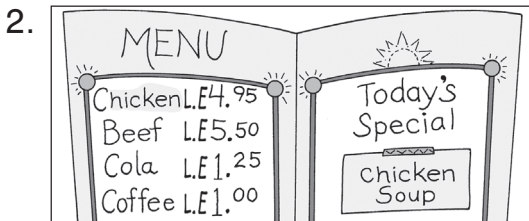 2.
MENU
Chicken L.E4.95
Beef L.E5.50
Cola L.E1.25
Coffee L.E1.00
Today's
Special
Chicken
Soup